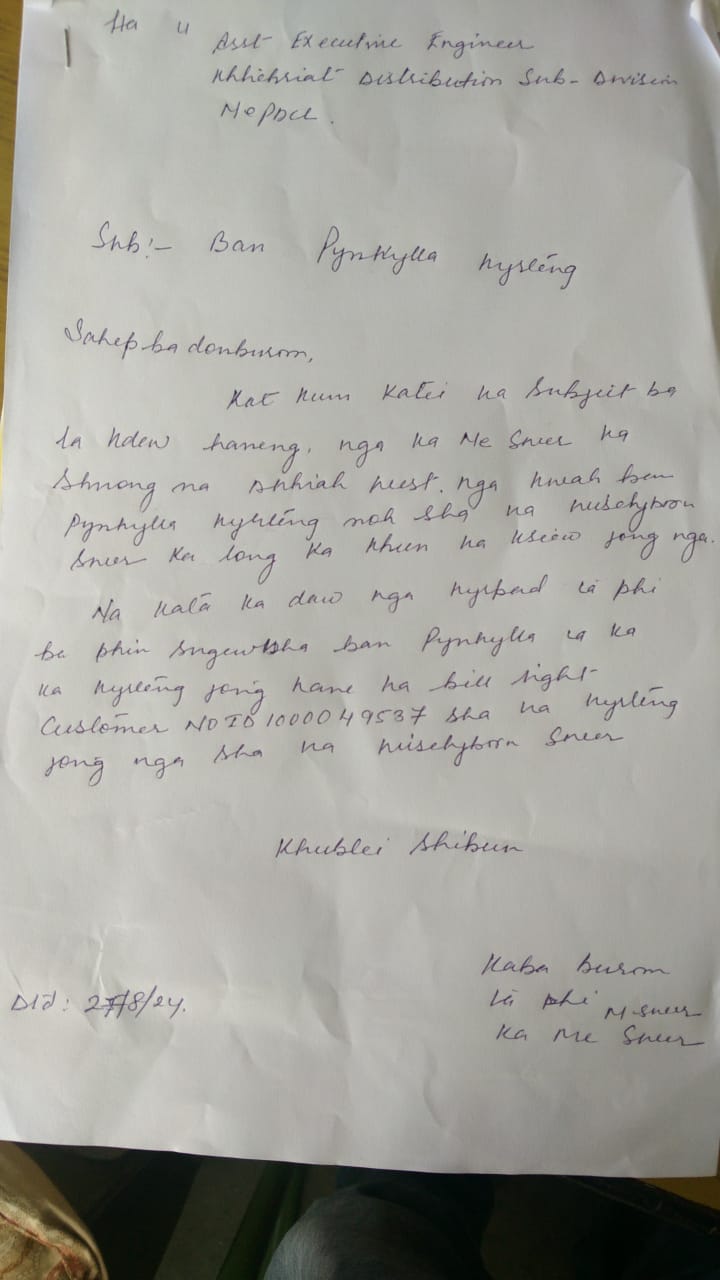 Ha u
Asst Executive Engineer
Khliehriat Distribution Sub-Division
MePDCL.
Sub:- Ban Pynkylla kyrteng
Sahep ba donburom,
Kat kum katei ka Subject ba
la kdew haneng, nga ka Me Sneer ka
Shnong na Dkhiah west. nga kwah ban
Pynkylla kyrteng noh sha ka
Sneer ka long ka khun ka ksiew jong nga.
Na kata ka daw nga kyrpad ïa phi
ba phin sngewbha ban Pynkylla ïa ka
ka kyrteng jong kane ka bill light
Customer NO ID 1000049537 sha ka kyrteng
jong nga sha ka Sneer
Khublei Shibun
Kaba burom
ïa phi M. Sneer
Ka Me Sneer
Dtd: 27/8/24.